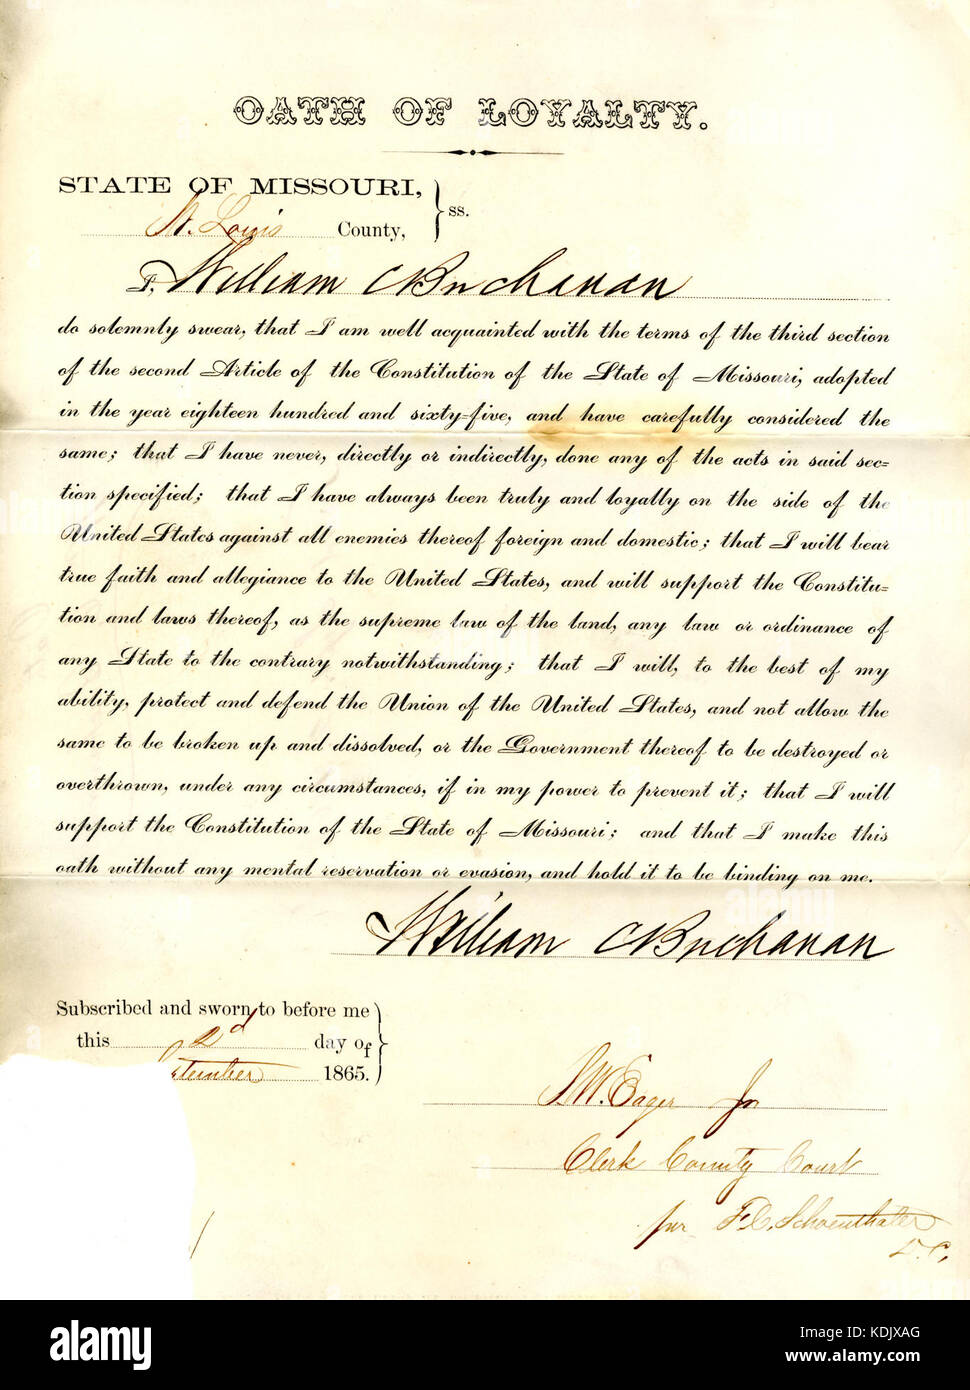 OATH OF LOYALTY.
STATE OF MISSOURI,
St. Louis County, } ss.
I, William Buchanan
do solemnly swear, that I am well acquainted with the terms of the third section
of the second Article of the Constitution of the State of Missouri, adopted
in the year eighteen hundred and sixty-five, and have carefully considered the
same; that I have never, directly or indirectly, done any of the acts in said sec-
tion specified; that I have always been truly and loyally on the side of the
United States against all enemies thereof foreign and domestic; that I will bear
true faith and allegiance to the United States, and will support the Constitu-
tion and laws thereof, as the supreme law of the land, any law or ordinance of
any State to the contrary notwithstanding; that I will, to the best of my
ability, protect and defend the Union of the United States, and not allow the
same to be broken up and dissolved, or the Government thereof to be destroyed or
overthrown, under any circumstances, if in my power to prevent it; that I will
support the Constitution of the State of Missouri; and that I make this
oath without any mental reservation or evasion, and hold it to be binding on me.
William Buchanan
Subscribed and sworn to before me
this 2d day of
tember 1865.
S.W. Eager Jr
Clerk County Court
per F.C. Schoenthaler
D.C.
alamy
Image ID: KDJXAG
www.alamy.com